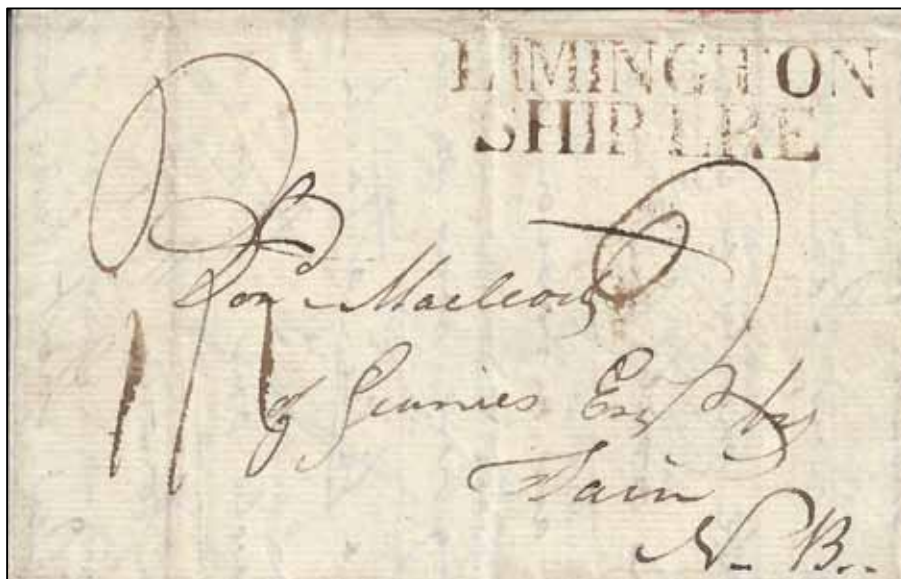 LIMINGTON
SHIP LRE
Don. Macleod
of Geanies Esqr by
Tain
N. B.